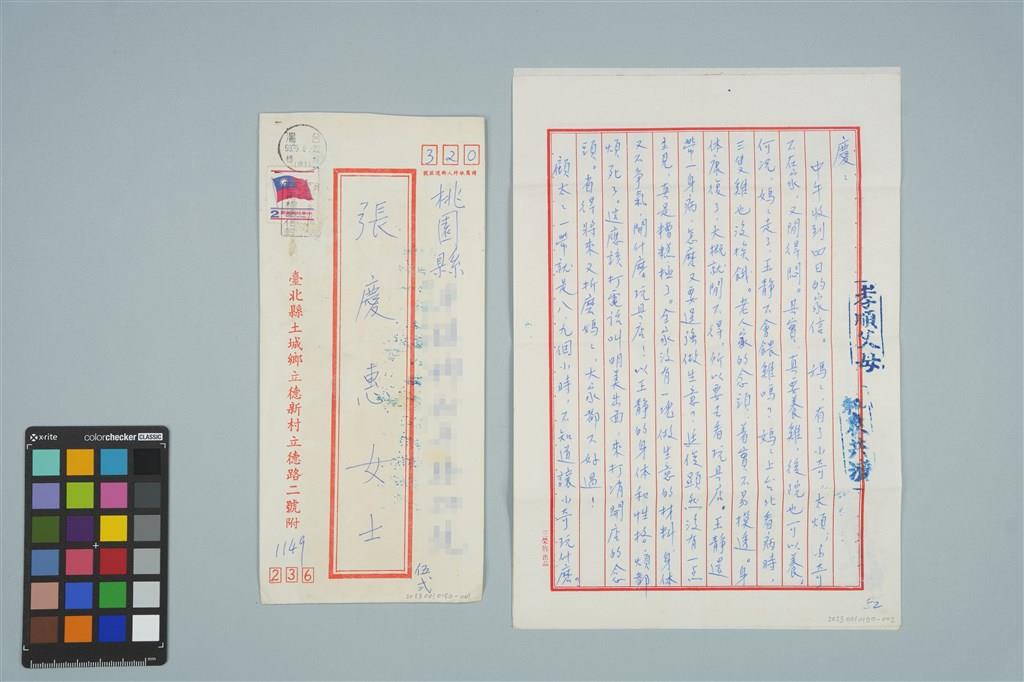 320
桃園縣
張慶惠女士
臺北縣土城鄉立德新村立德路二號附
1149
236
伍弍
2023.001.0190-001
慶：
中午收到四日的家信。媽媽有了小奇太煩，小奇
不在家，又閒得悶。其實，真要養雞，後院也可以養，
何況，媽媽走了王静不會餵雞嗎？媽媽上台北看病時，
三隻雞也沒挨餓。老人家的念頭，着實不易摸透。身
体康復了大概就閒不得，所以要去看玩具店。王静還
帶一身病，怎麼又要逞強做生意？進俊顯然沒有一点
主見，真是糟糕極了。全家沒有一塊做生意的材料，身体
又不爭氣，開什麼玩具店！以王静的身体和性格，煩都
煩死了。這應該打電話叫明美出面，來打消開店的念
頭。省得將來又折磨媽媽，大家都不好過！
顧太太一帶就是八、九個小時，不知道讓小奇玩什麼。
孝順父母
52
2023.001.0190-002
x-rite
colorchecker CLASSIC